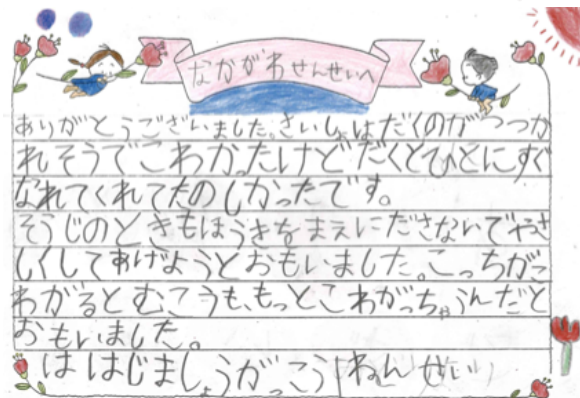 なかがわせんせいへ
ありがとうございました。さいしょはだくのがつつか
れそうでこわかったけどだくとひとにすぐ
なれてくれてたのしかったです。
そうじのときもほうきをまえにださないでやさ
しくしてあげようとおもいました。こっちがこ
わがるとむこうも、もっとこわがっちゃうんだと
おもいました。
ははじましょうがっこう1ねんせい